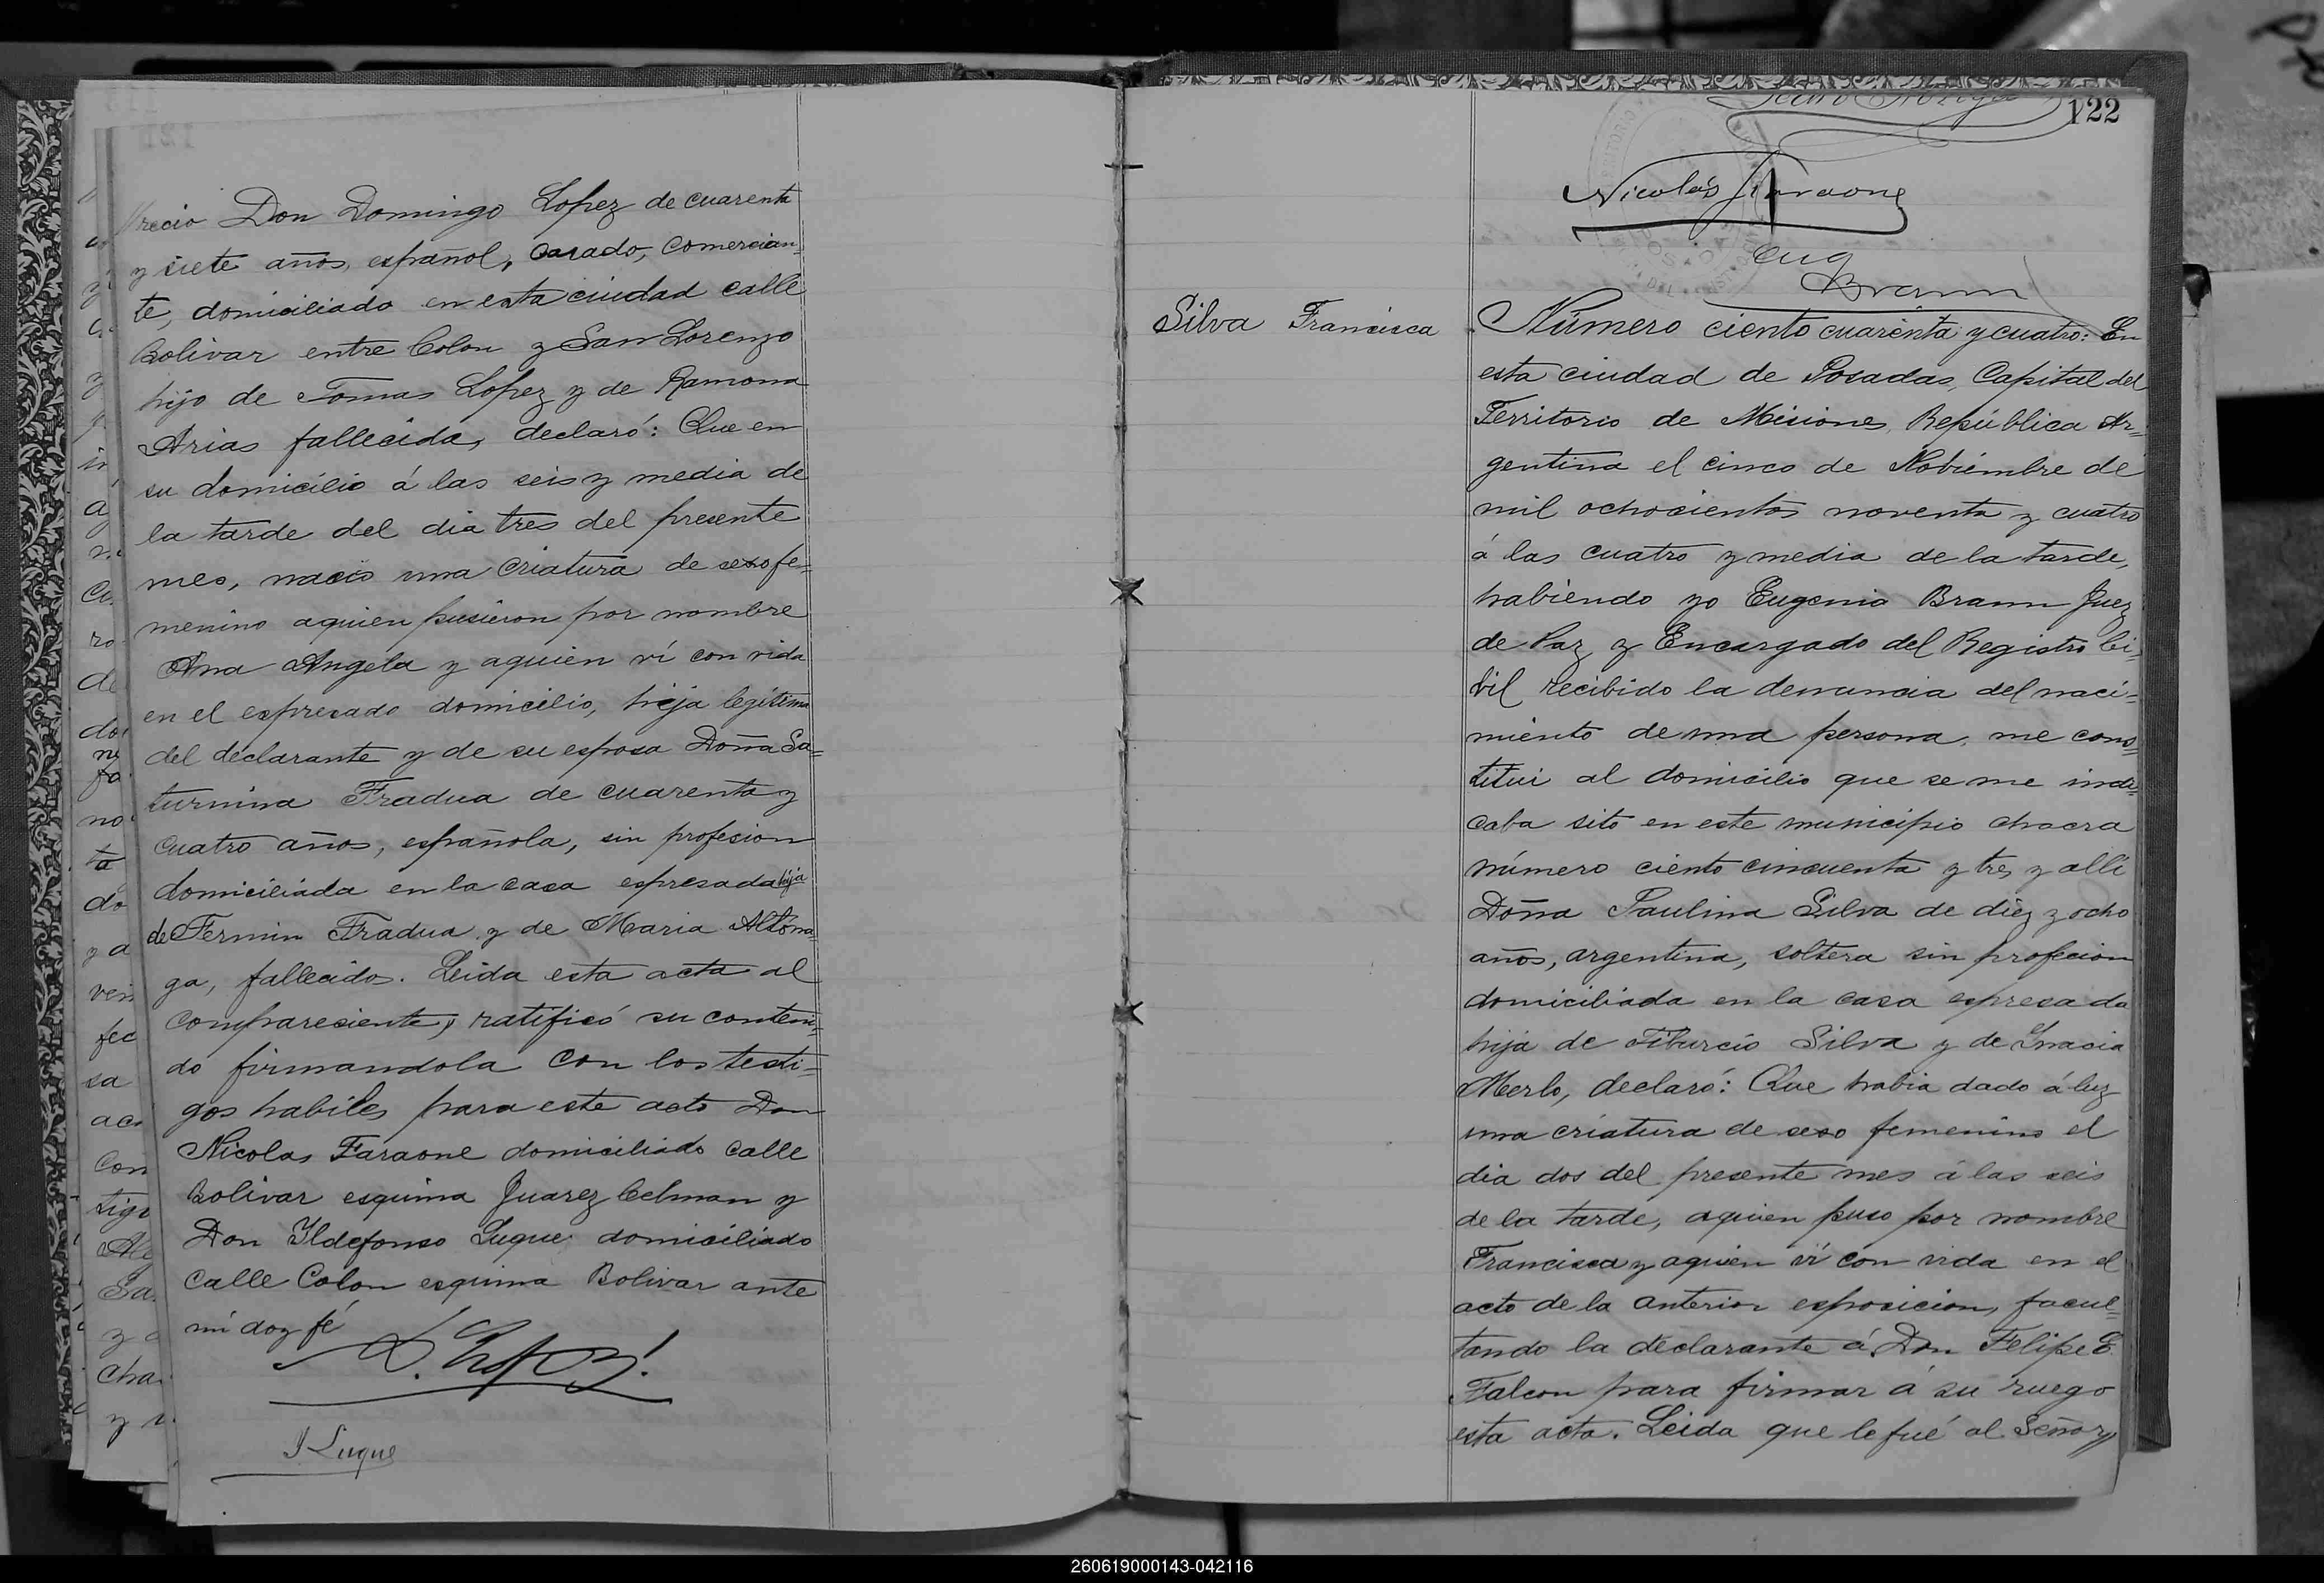 recio Don Domingo Lopez de cuarenta
y siete años, español, casado, comercian=
te, domiciliado en esta ciudad calle
Bolivar entre Colon y San Lorenzo
hijo de Tomas Lopez y de Ramona
Arias fallecida, declaró: Que en
su domicilio á las seis y media de
la tarde del dia tres del presente
mes, nació una criatura de sexo fe=
menino aquien pusieron por nombre
Ana Angela y aquien ví con vida
en el espresado domicilio, hija legítima
del declarante y de su esposa Doña Sa=
turnina Fradua de cuarenta y
cuatro años, española, sin profesion
domiciliada en la casa espresada hija
de Fermin Fradua y de Maria Altóna=
ga, fallecidos. Leida esta acta al
compareciente, ratificó su conteni=
do firmandola con los testi=
gos habiles para este acto Don
Nicolas Faraone domiciliado calle
Bolivar esquina Juarez Celman y
Don Ildefonso Luque domiciliado
calle Colon esquina Bolivar ante
mi doy fé
D. Lopez
I Luque
122
Nicolás Faraone
Eug
Braun
Silva Francisca
Número ciento cuarenta y cuatro: En
esta ciudad de Posadas, Capital del
Territorio de Misiones, República Ar=
gentina el cinco de Nobiembre de
mil ochocientos noventa y cuatro
á las cuatro y media de la tarde,
habiendo yo Eugenio Braun Juez
de Paz y Encargado del Registro Ci=
bil recibido la denuncia del naci=
miento de una persona, me cons=
titui al domicilio que se me indi=
caba sito en este municipio chacra
número ciento cincuenta y tres y alli
Doña Paulina Silva de diez y ocho
años, argentina, soltera sin profecion
domiciliada en la casa espresada
hija de Tiburcio Silva y de Inacia
Merlo, declaró: Que habia dado á luz
una criatura de sexo femenino el
dia dos del presente mes á las seis
de la tarde, aquien puso por nombre
Francisca y aquien ví con vida en el
acto de la anterior esposicion, facul=
tando la declarante á Don Felipe E.
Falcon para firmar á su ruego
esta acta. Leida que le fué al Señor
260619000143-042116